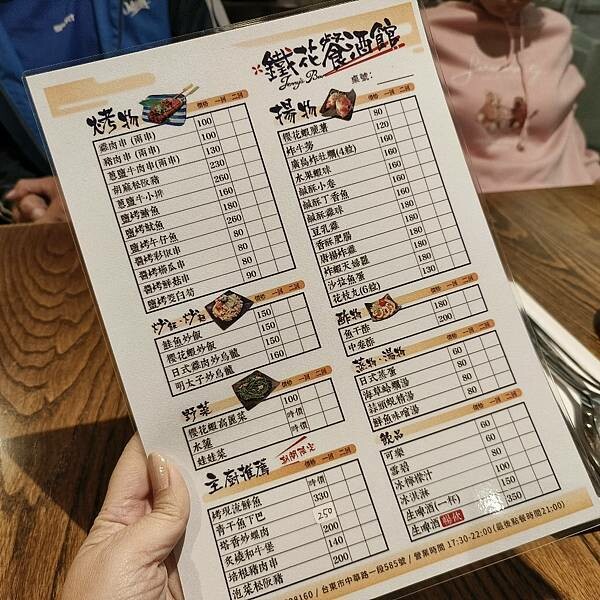 鐵花餐酒館
Jenny's Bar
桌號：
烤物 價格 一回 二回
雞肉串 (兩串) 100
豬肉串 (兩串) 100
蔥鹽牛肉串(兩串) 130
胡麻松阪豬 230
蔥鹽牛小排 260
鹽烤鯖魚 160
鹽烤魷魚 180
鹽烤午仔魚 260
醬烤彩椒串 80
醬烤櫛瓜串 80
醬烤鮮菇串 80
鹽烤茭白筍 90
揚物 價格 一回 二回
櫻花蝦脆薯 80
炸牛蒡 120
廣島炸牡蠣(4粒) 160
水果蝦球 160
鹹酥小卷 160
鹹酥丁香魚 160
鹹酥雞球 160
豆乳雞 180
香酥肥腸 180
唐揚炸雞
炸蝦天婦羅
沙拉魚蛋 130
花枝丸(6粒)
炒飯·炒麵 價格 一回 二回
鮭魚炒飯 150
櫻花蝦炒飯 150
日式雞肉炒烏龍 150
明太子炒烏龍 160
酢物 價格 一回 二回
魚干酢 180
中卷酢 200
蒸物·湯物 價格 一回 二回
日式蒸蛋 60
海草蛤蠣湯 80
蒜頭蜆精湯 80
鮮魚味噌湯 80
野菜 價格 一回 二回
櫻花蝦高麗菜 100
水蓮 時價
娃娃菜 時價
主廚推薦 期間限定 價格 一回 二回
烤現流鮮魚 時價
青干魚下巴 330
塔香炒螺肉 250
炙燒和牛堡 200
培根豬肉串 140
泡菜松阪豬 200
飲品 價格 一回 二回
可樂 60
雪碧 60
冰檸檬汁 80
冰淇淋 60
生啤酒(一杯) 150
生啤酒 暢飲 350
8160 / 台東市中華路一段585號 / 營業時間 17:30-22:00(最後點餐時間21:00)